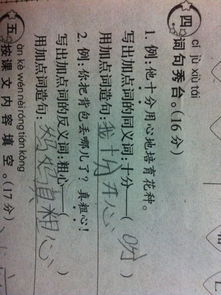 cí jù xiù tái
四 词句秀台。(16分)
1. 例:他十分用心地培育花种。
写出加点词的同义词:十分—( )
用加点词造句:我十分开心
2. 例:你把背包丢哪儿了?真粗心!
写出加点词的反义词:粗心—( )
用加点词造句:妈妈真粗心
àn kè wén nèi róng tián kòng
五 按课文内容填空。(17分)